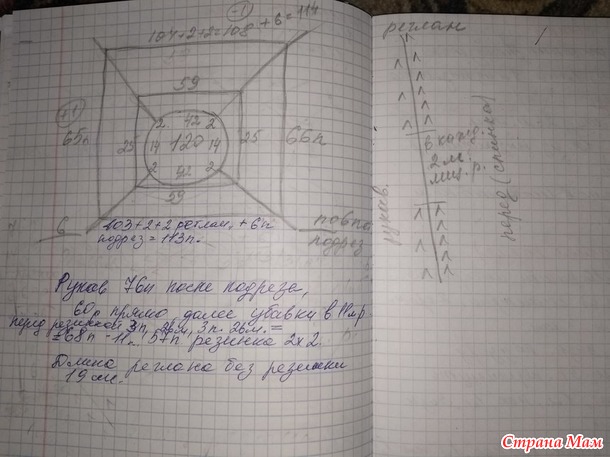 -1
104+2+2=108 +6=114
59
+1
2 42 2
65п 25 14 120 14 25 66п
2 42 2
59
6
103+2+2 реглан, + 6п
подрез = 113п.
подрез
Рукав 76п после подреза,
60р прямо далее убавки в 11м р
перед резинкой 3п, 2вм, 3п. 2вм. =
=68п -11п, 57п резинка 2х2.
Длина реглана без резинки
19 см.
реглан
в кажд.
2м.
лиц. р.
рукав.
перед (спинка)
Страна Мам